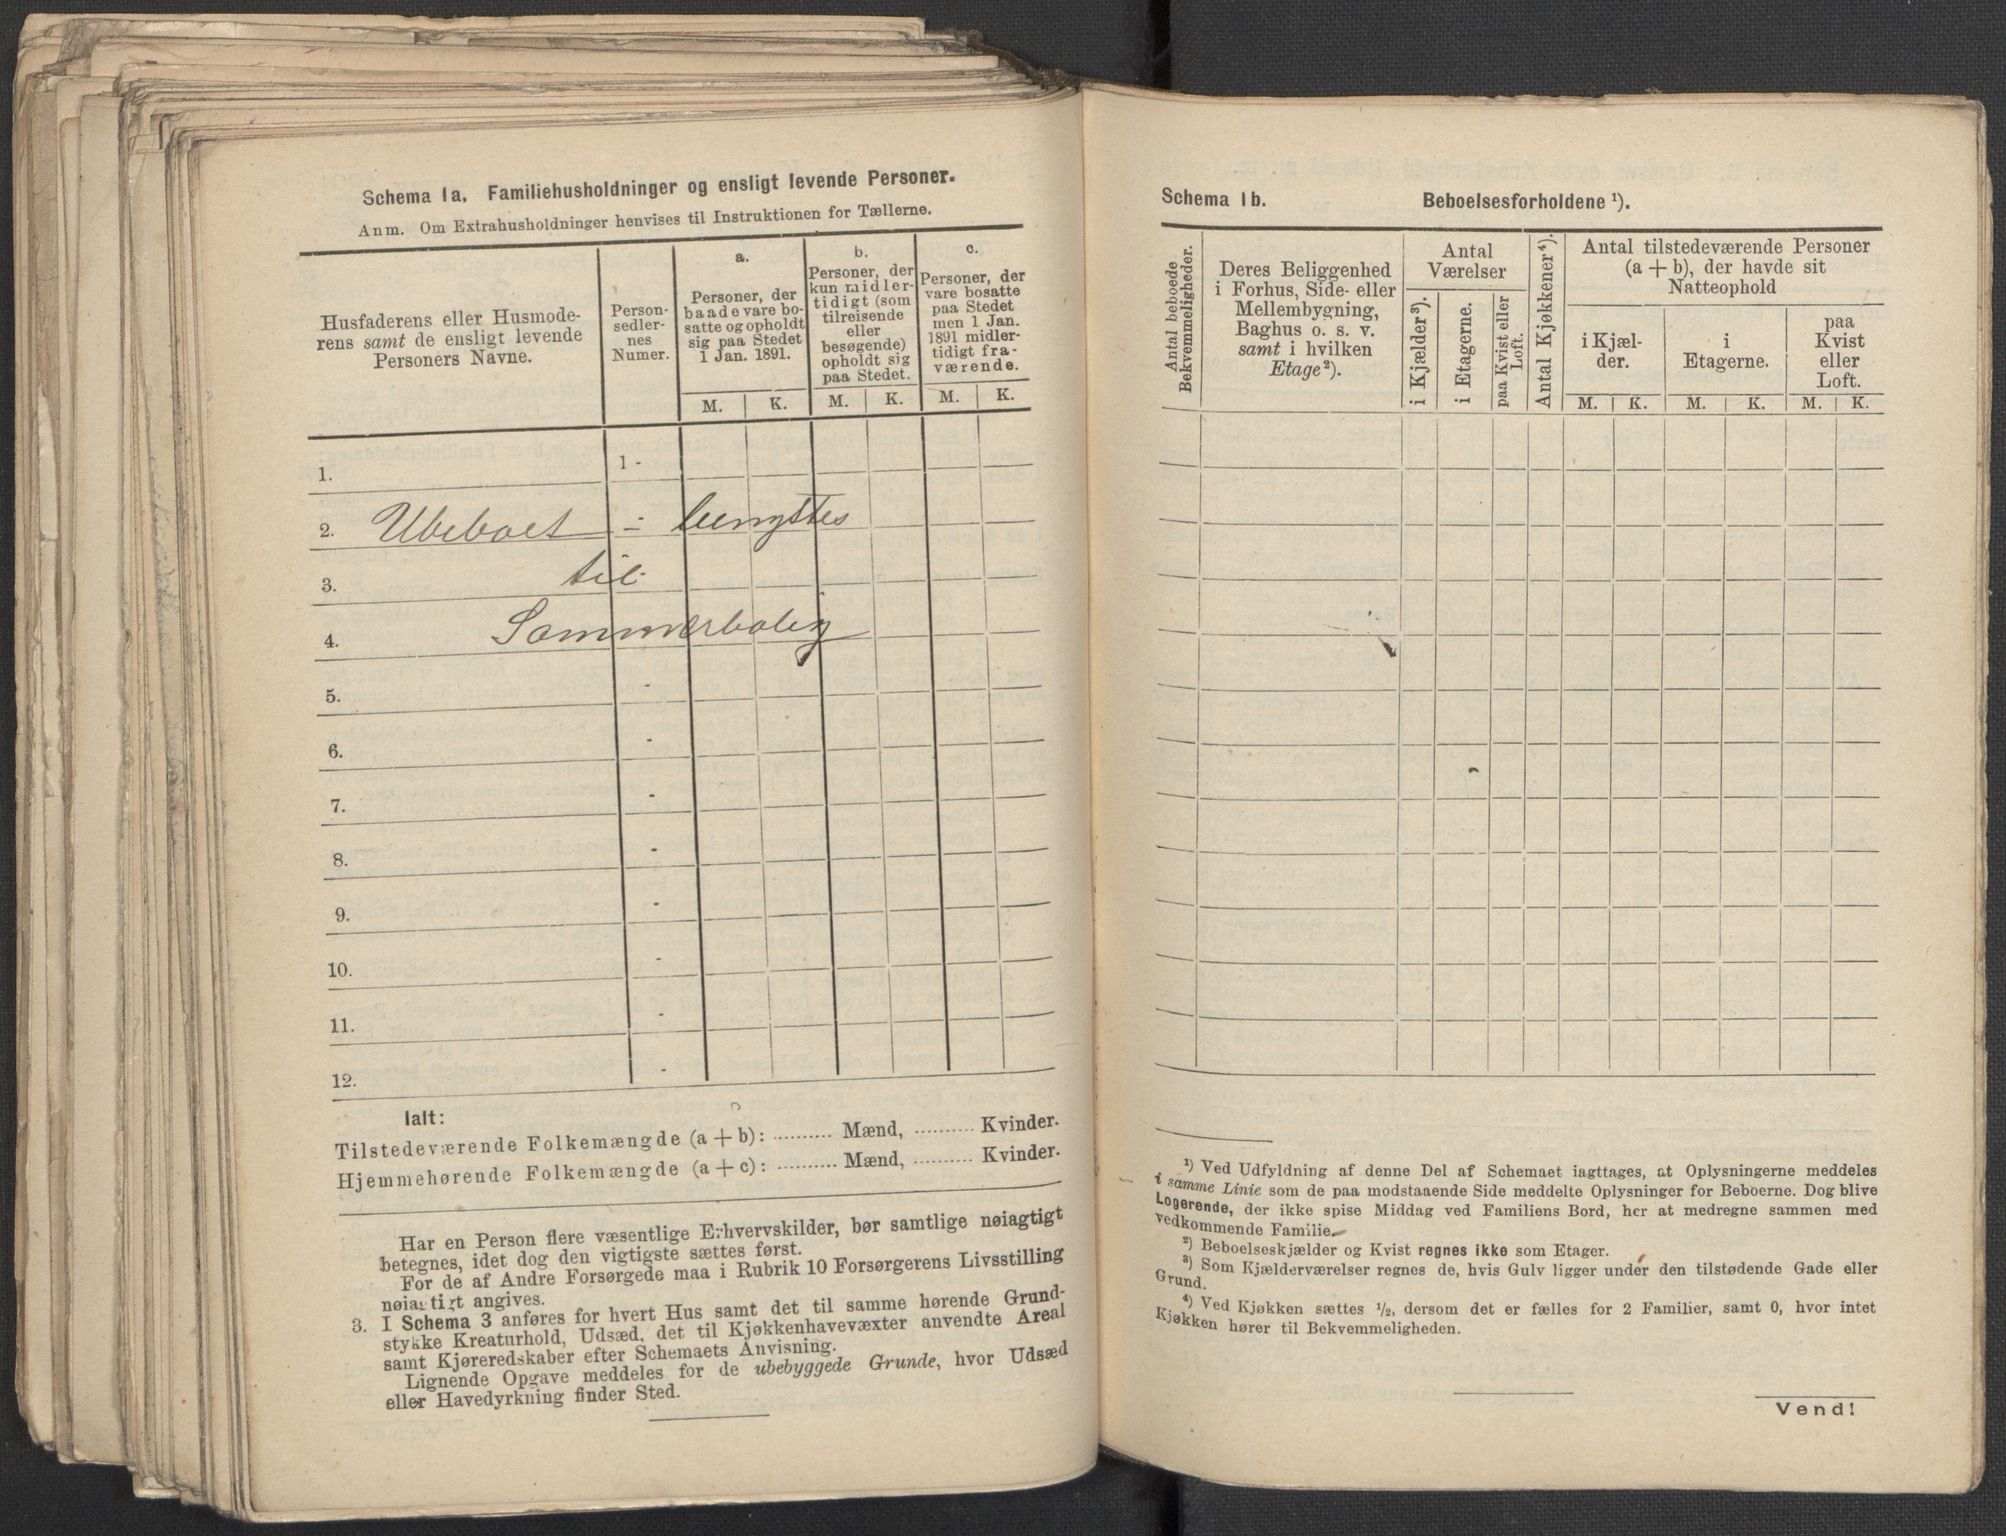 Schema 1a. Familiehusholdninger og ensligt levende Personer.
Anm. Om Extrahusholdninger henvises til Instruktionen for Tællerne.
Husfaderens eller Husmode-
rens samt de ensligt levende
Personers Navne.
Person-
sedler-
nes
Numer.
a.
Personer, der
baade vare bo-
satte og opholdt
sig paa Stedet
1 Jan. 1891.
b.
Personer, der
kun midler-
tidigt (som
tilreisende
eller
besøgende)
opholdt sig
paa Stedet.
c.
Personer, der
vare bosatte
paa Stedet
men 1 Jan.
1891 midler-
tidigt fra-
værende.
M. K. M. K. M. K.
1. 1 -
2. Ubeboet - benyttes
3. til
4. Sommerbolig
5. -
6. -
7. -
8. -
9. -
10. -
11. -
12. -
Ialt:
Tilstedeværende Folkemængde (a + b): .......... Mænd, .......... Kvinder.
Hjemmehørende Folkemængde (a + c): .......... Mænd, .......... Kvinder.
Har en Person flere væsentlige Erhvervskilder, bør samtlige nøiagtigt
betegnes, idet dog den vigtigste sættes først.
For de af Andre Forsørgede maa i Rubrik 10 Forsørgerens Livsstilling
nøiagtigt angives.
3. I Schema 3 anføres for hvert Hus samt det til samme hørende Grund-
stykke Kreaturhold, Udsæd, det til Kjøkkenhavevæxter anvendte Areal
samt Kjøreredskaber efter Schemaets Anvisning.
Lignende Opgave meddeles for de ubebyggede Grunde, hvor Udsæd
eller Havedyrkning finder Sted.
Schema 1b. Beboelsesforholdene ¹).
Antal beboede
Bekvemmeligheder.
Deres Beliggenhed
i Forhus, Side- eller
Mellembygning,
Baghus o. s. v.
samt i hvilken
Etage²).
Antal
Værelser
i Kjælder³).
i Etagerne.
paa Kvist eller
Loft.
Antal Kjøkkener⁴).
Antal tilstedeværende Personer
(a + b), der havde sit
Natteophold
i Kjæl-
der.
i
Etagerne.
paa
Kvist
eller
Loft.
M. K. M. K. M. K.
¹) Ved Udfyldning af denne Del af Schemaet iagttages, at Oplysningerne meddeles
i samme Linie som de paa modstaaende Side meddelte Oplysninger for Beboerne. Dog blive
Logerende, der ikke spise Middag ved Familiens Bord, her at medregne sammen med
vedkommende Familie.
²) Beboelseskjælder og Kvist regnes ikke som Etager.
³) Som Kjælderværelser regnes de, hvis Gulv ligger under den tilstødende Gade eller
Grund.
⁴) Ved Kjøkken sættes ½, dersom det er fælles for 2 Familier, samt 0, hvor intet
Kjøkken hører til Bekvemmeligheden.
Vend!